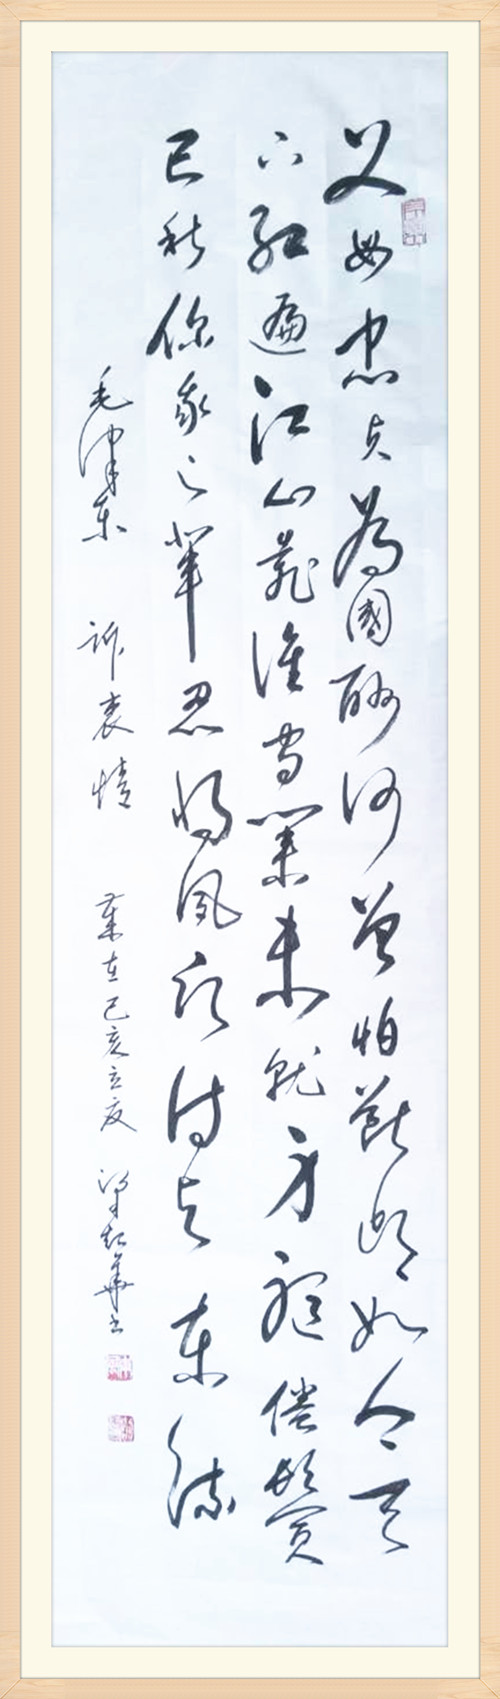 父母忠贞為國酬何曾怕断头如今天
下红遍江山靠谁守業未就身躯倦鬓
已秋你我之輩忍将夙愿付与东流
毛泽东 诉衷情 歲在己亥立夏 梁華书